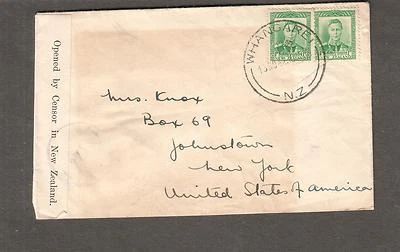 WHANGAREI
N.Z
Opened by Censor in New Zealand.
Mrs. Knox
Box 69
Johnstown
New York
United States of America